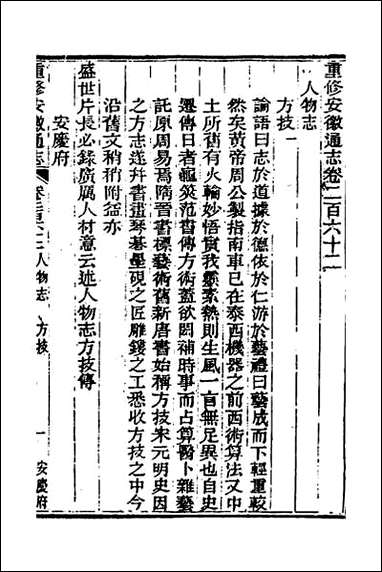 重修安徽通志卷二百六十二
人物志
方技一
論語曰志於道據於德依於仁游於藝禮曰藝成而下輕重較
然矣黃帝周公製指南車已在泰西機器之前西術算法又中
土所舊有火輪妙悟實我靈素熱則生風一言無足異也自史
遷傳日者龜筴范書傳方術蓋欲罔補時事而占算醫卜雜藝
託原周易焉隋晉書標藝術舊新唐書始稱方技宋元明史因
之方志遂幷書畫琴棊墨硯之匠雕鏤之工悉收方技之中今
沿舊文稍稍附益亦
盛世片長必錄廣厲人材意云述人物志方技傳
安慶府
重修安徽通志
卷二百六十二人物志
方技
一
安慶府